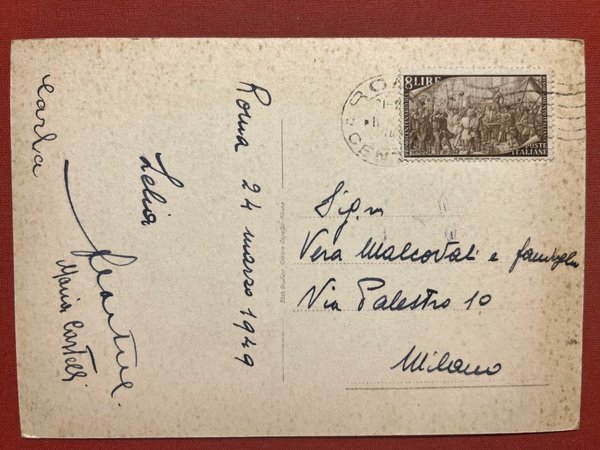 Roma 24 marzo 1949
Lelia
Carla
Maria Castelli
8 LIRE
POSTE
ITALIANE
ROMA
CENT
Sig.ra
Vera Malcovati e famiglia
Via Palestro 10
Milano